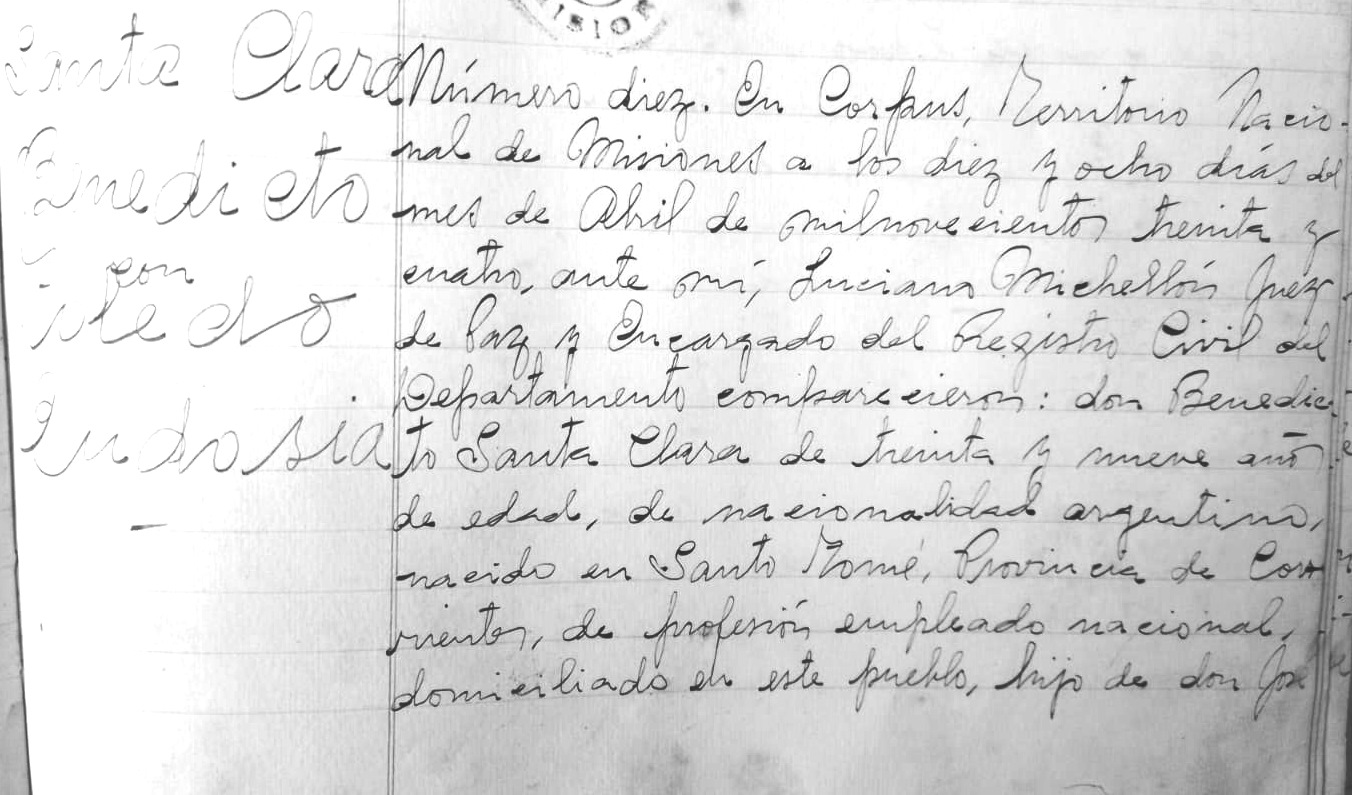 MISION
Santa Clara
Benedicto
con
Ledo
Eudosia
Número diez. En Corpus, Territorio Nacio-
nal de Misiones a los diez y ocho días del
mes de Abril de milnovecientos treinta y
cuatro, ante mí, Luciano Michellón Juez
de Paz y Encargado del Registro Civil del
Departamento comparecieron: don Benedic
to Santa Clara de treinta y nueve años
de edad, de nacionalidad argentino,
nacido en Santo Tomé, Provincia de Cor
rientes, de profesión empleado nacional,
domiciliado en este pueblo, hijo de don José